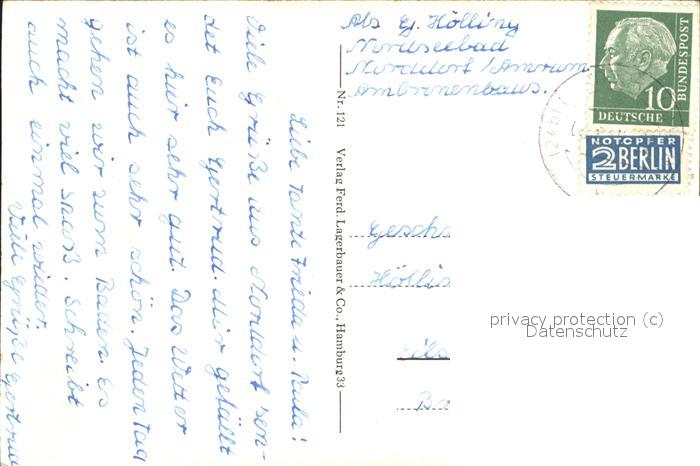 Liebe Tante Frieda u. Paula!
Viele Grüße aus Norddorf sen-
det Euch Gertrud. Mir gefällt
es hier sehr gut. Das Wetter
ist auch sehr schön. Jeden Tag
gehen wir zum Baden. Es
macht viel Spaß. Schreibt
auch einmal wieder.
Viele Grüße Gertrud
Nr. 121 Verlag Ferd. Lagerbauer & Co., Hamburg 33
Abs. G. Hölling
Nordseebad
Norddorf/Amrum
Ambronenhaus.
DEUTSCHE
BUNDESPOST
10
NOTOPFER
2 BERLIN
STEUERMARKE
Gesch
Höllin
Ba
privacy protection (c)
Datenschutz